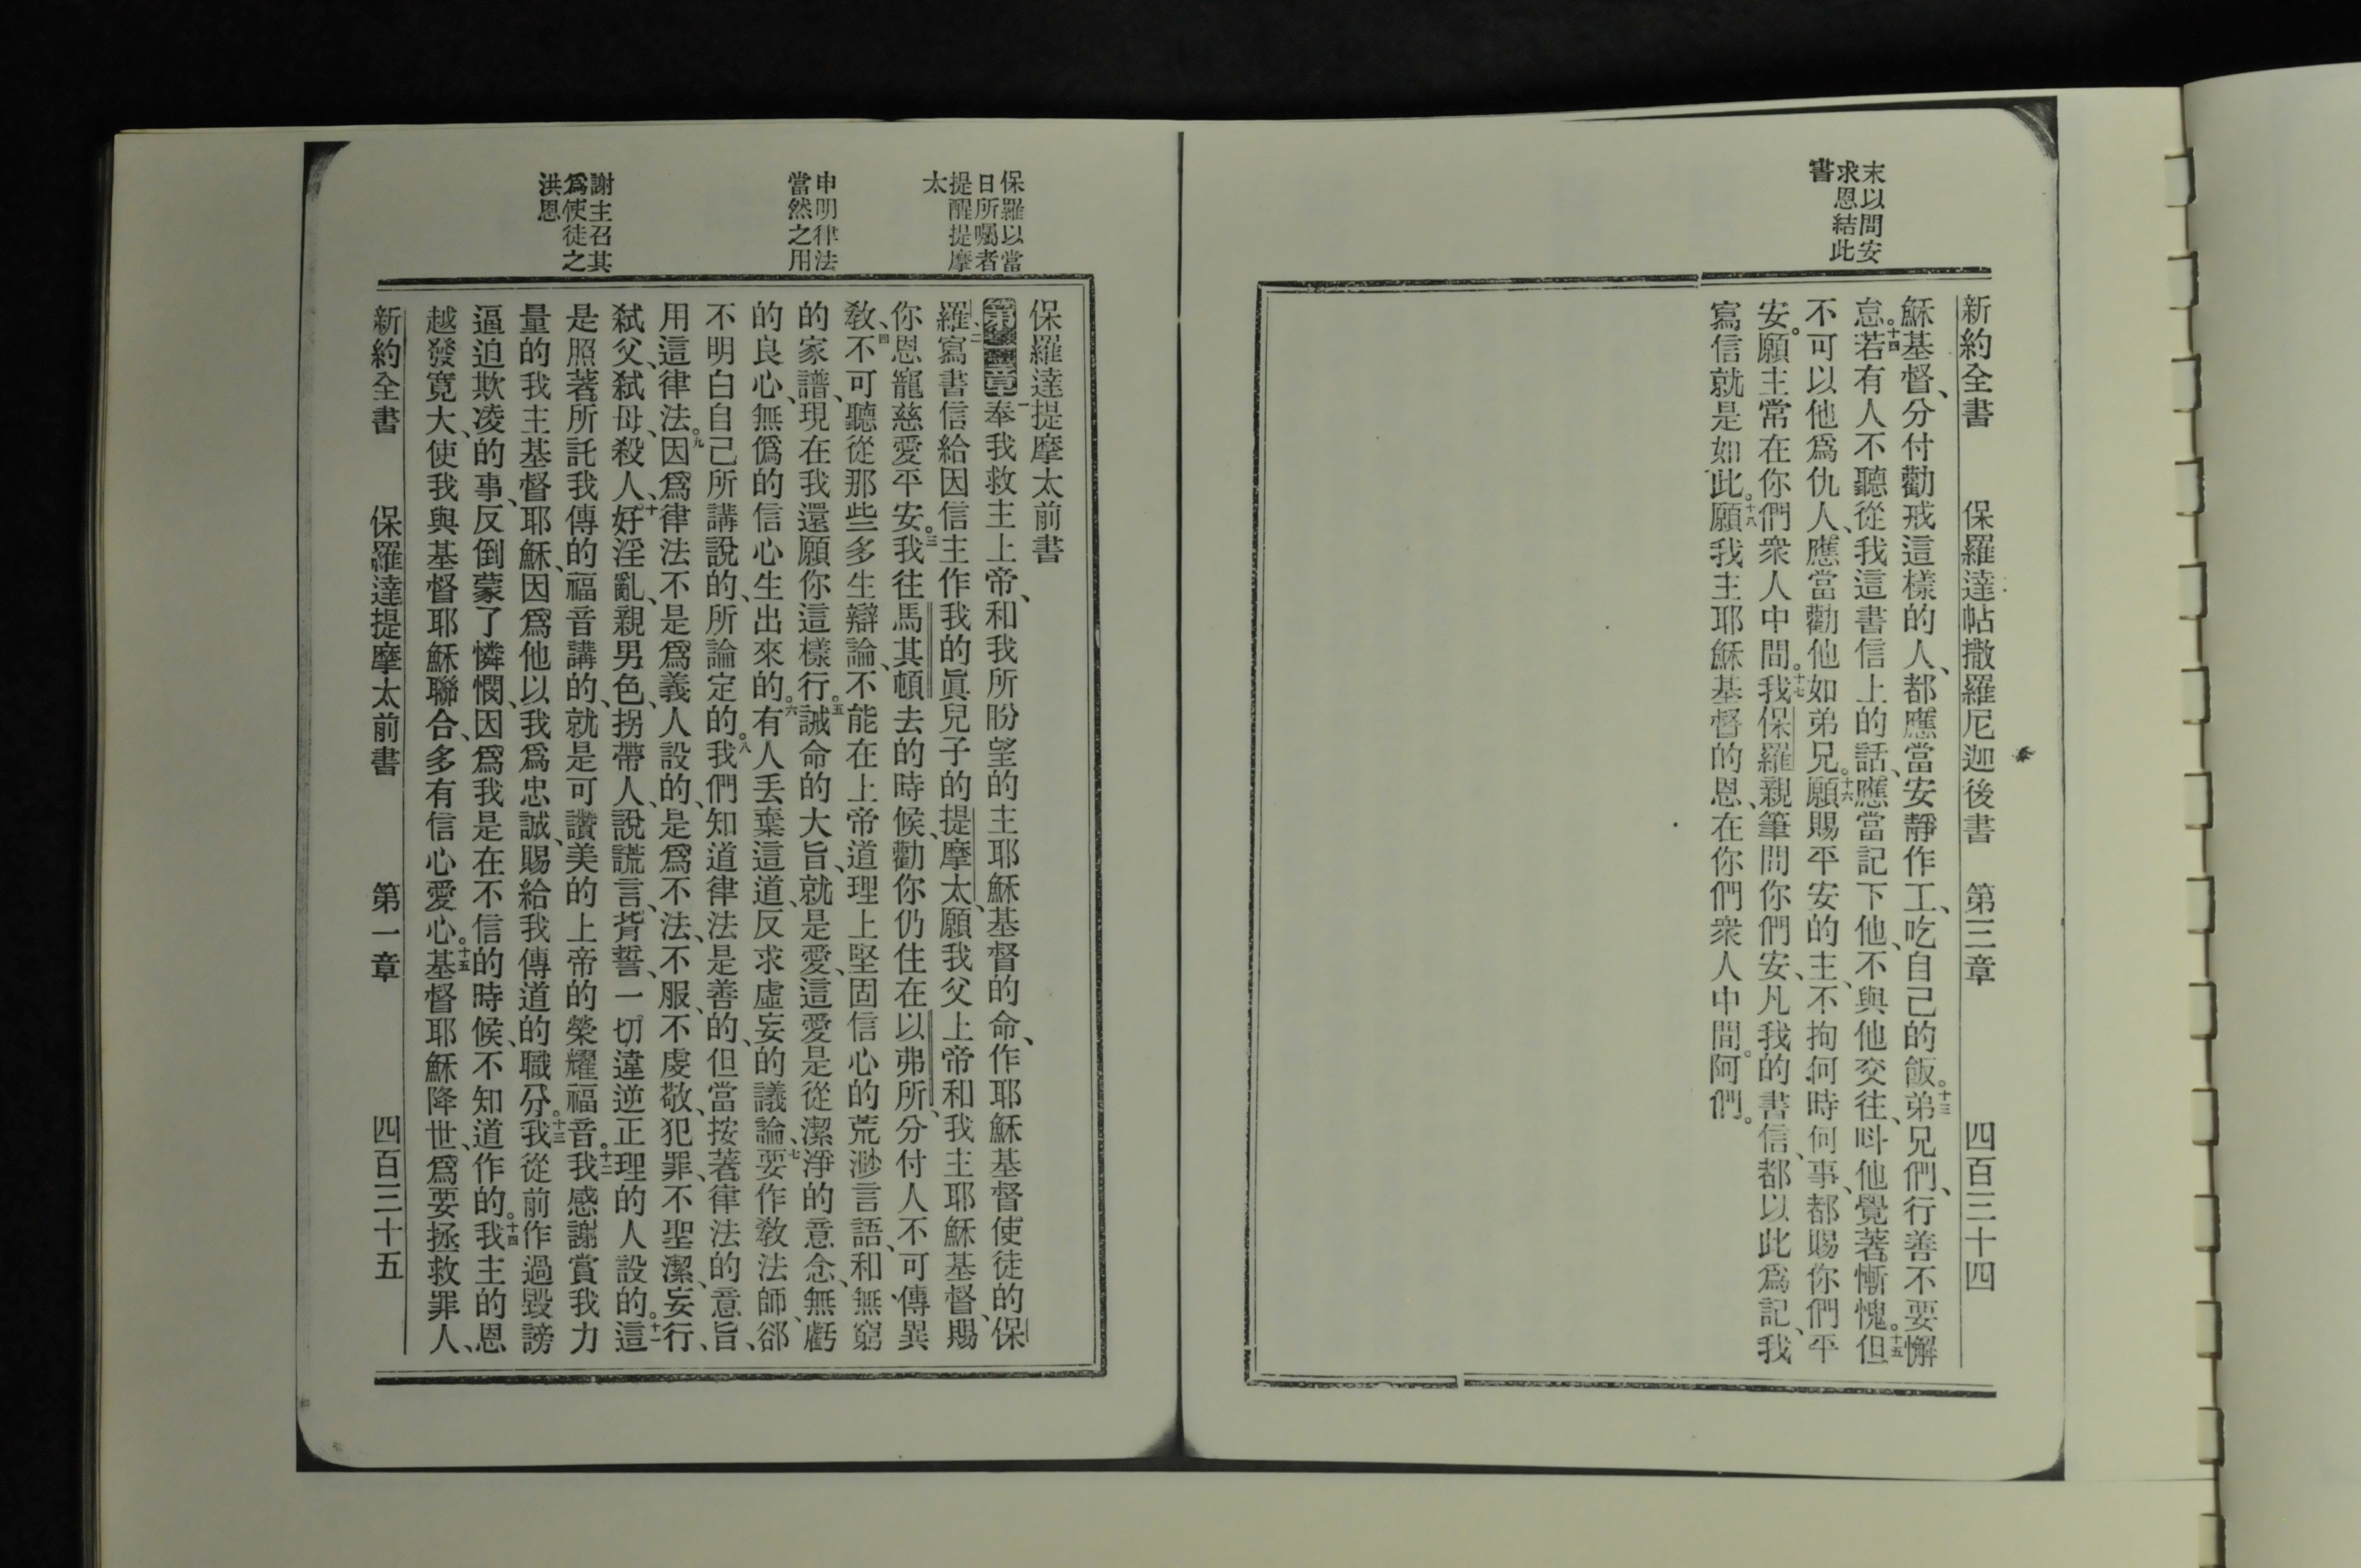 末以問安
求恩結此
書
新約全書 保羅達帖撒羅尼迦後書 第三章 四百三十四
穌基督、分付勸戒這樣的人、都應當安靜作工、吃自己的飯。十三弟兄們、行善不要懈
怠。十四若有人不聽從我這書信上的話、應當記下他、不與他交往、呌他覺著慚愧。十五但
不可以他爲仇人、應當勸他如弟兄。十六願賜平安的主、不拘何時何事、都賜你們平
安。願主常在你們衆人中間。十七我保羅親筆問你們安、凡我的書信、都以此爲記、我
寫信就是如此。十八願我主耶穌基督的恩、在你們衆人中間。阿們。
保羅以當
日所囑者
提醒提摩
太
申明律法
當然之用
謝主召其
爲使徒之
洪恩
保羅達提摩太前書
第一章一奉我救主上帝、和我所盼望的主耶穌基督的命、作耶穌基督使徒的、保
羅、二寫書信給因信主作我的眞兒子的提摩太、願我父上帝和我主耶穌基督、賜
你恩寵慈愛平安。三我往馬其頓去的時候、勸你仍住在以弗所、分付人不可傳異
敎、四不可聽從那些多生辯論、不能在上帝道理上堅固信心的荒渺言語、和無窮
的家譜、現在我還願你這樣行。五誡命的大旨、就是愛、這愛是從潔淨的意念、無虧
的良心、無僞的信心生出來的。六有人丟棄這道、反求虛妄的議論、七要作敎法師、郤
不明白自己所講說的、所論定的。八我們知道律法是善的、但當按著律法的意旨、
用這律法。九因爲律法不是爲義人設的、是爲不法、不服、不虔敬、犯罪、不聖潔、妄行、
弒父、弒母、殺人、十好淫亂、親男色、拐帶人、說謊言、背誓、一切違逆正理的人設的。十一這
是照著所託我傳的福音講的、就是可讚美的上帝的榮耀福音。十二我感謝賞我力
量的我主基督耶穌、因爲他以我爲忠誠、賜給我傳道的職分。十三我從前作過毀謗
逼迫欺凌的事、反倒蒙了憐憫、因爲我是在不信的時候、不知道作的。十四我主的恩
越發寬大、使我與基督耶穌聯合、多有信心愛心。十五基督耶穌降世、爲要拯救罪人、
新約全書 保羅達提摩太前書 第一章 四百三十五